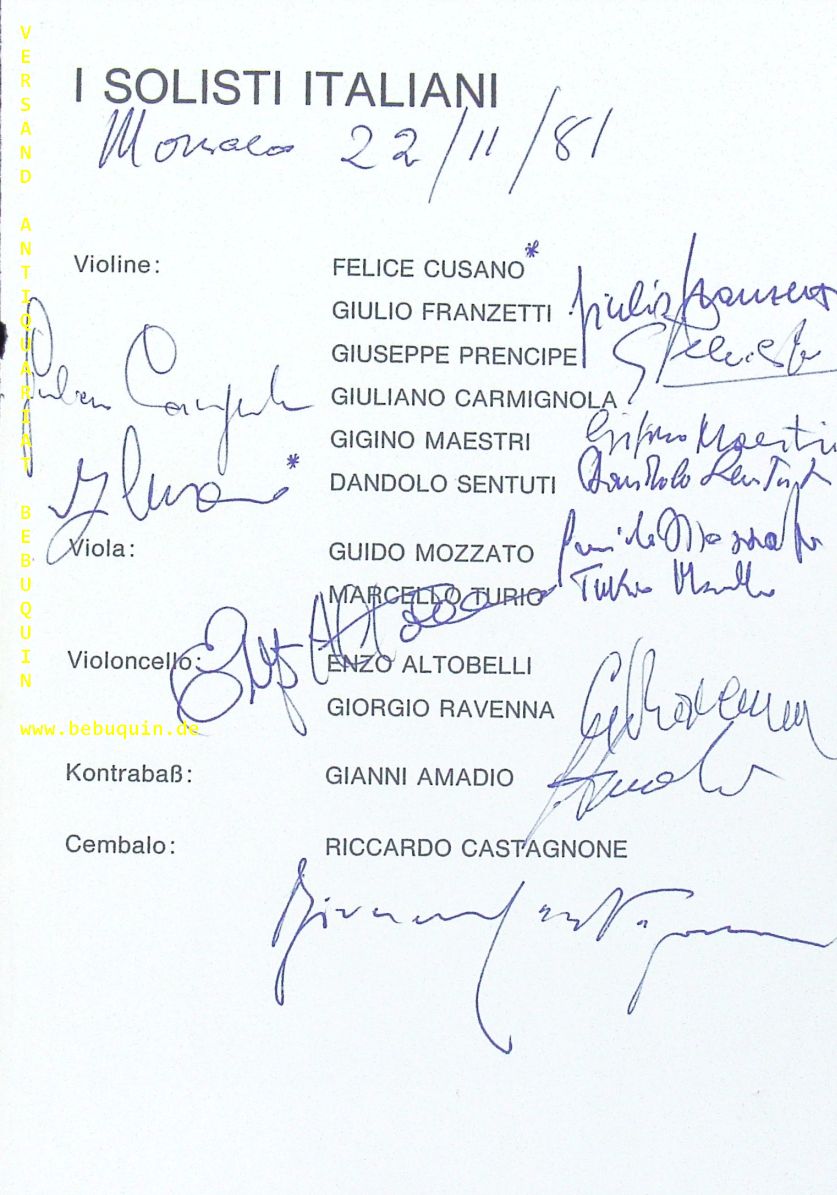 I SOLISTI ITALIANI
Monaco 22/11/81
Violine: FELICE CUSANO*
GIULIO FRANZETTI Giulio Franzetti
GIUSEPPE PRENCIPE
GIULIANO CARMIGNOLA
GIGINO MAESTRI Gigino Maestri
*
DANDOLO SENTUTI Dandolo Sentuti
Viola: GUIDO MOZZATO Guido Mozzato
MARCELLO TURIO Turio Marcello
Violoncello: ENZO ALTOBELLI
GIORGIO RAVENNA G Ravenna
Kontrabaß: GIANNI AMADIO
Cembalo: RICCARDO CASTAGNONE
VERSAND ANTIQUARIAT BEBUQUIN
www.bebuquin.de